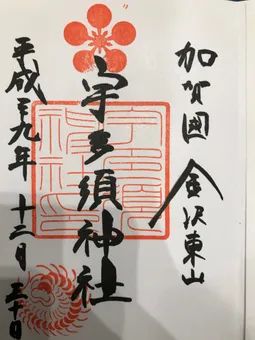 加賀國 金沢東山
宇多須神社
平成二九年 十二月 三十日